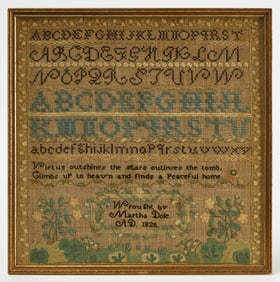 ABCDEFGHIJKLMNOPQRST
ABCDEFGHIJKLM
NOPQRSTUVW
ABCDEFGHIJL
KLMNOPQRSTU
abcdefghijklmnopqrstuvwxy
Virtue outshines the stars outlives the tomb.
Climbs up to heav'n and finds a Peaceful home.
Wrought by
Martha Dole.
A.D. 1826.